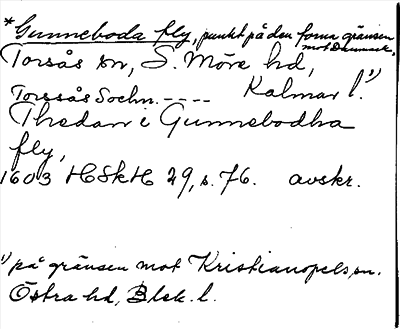 *Gunneboda fly, punkt på den forna gränsen
mot Danmark.
Torsås sn, S. Möre hd,
Kalmar l.¹)
Torssås Sochn. ----
Thedan i Gunnebodha
fly,
1603 HSkH 29, s. 76. avskr.
¹) på gränsen mot Kristianopels sn.
Östra hd, Blek. l.